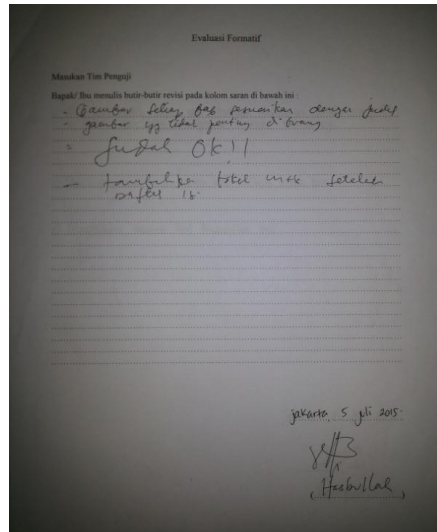 Evaluasi Formatif
Masukan Tim Penguji
Bapak/ Ibu menulis butir-butir revisi pada kolom saran di bawah ini :
- Gambar setiap bab sesuaikan dengan judul
- gambar yg tidak penting dibuang
- Sudah OK!!
- tambahkan tabel setelah
daftar isi.
jakarta, 5 juli 2015.
( Hasbullah )